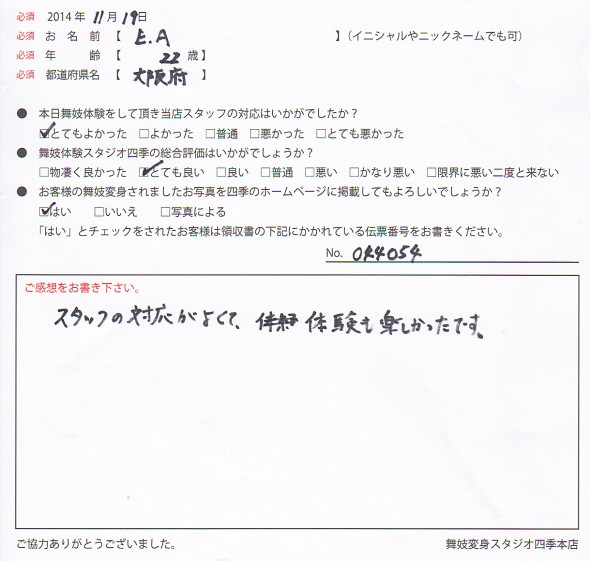 必須 2014年 11月 19日
必須 お名前【 E.A 】(イニシャルやニックネームでも可)
必須 年齢【 22 歳】
必須 都道府県名【 大阪府 】
● 本日舞妓体験をして頂き当店スタッフの対応はいかがでしたか?
☑とてもよかった □よかった □普通 □悪かった □とても悪かった
● 舞妓体験スタジオ四季の総合評価はいかがでしょうか?
□物凄く良かった ☑とても良い □良い □普通 □悪い □かなり悪い □限界に悪い二度と来ない
● お客様の舞妓変身されましたお写真を四季のホームページに掲載してもよろしいでしょうか?
☑はい □いいえ □写真による
「はい」とチェックをされたお客様は領収書の下記にかかれている伝票番号をお書きください。
No. 044054
ご感想をお書き下さい。
スタッフの対応がよくて、体験も楽しかったです。
ご協力ありがとうございました。 舞妓変身スタジオ四季本店